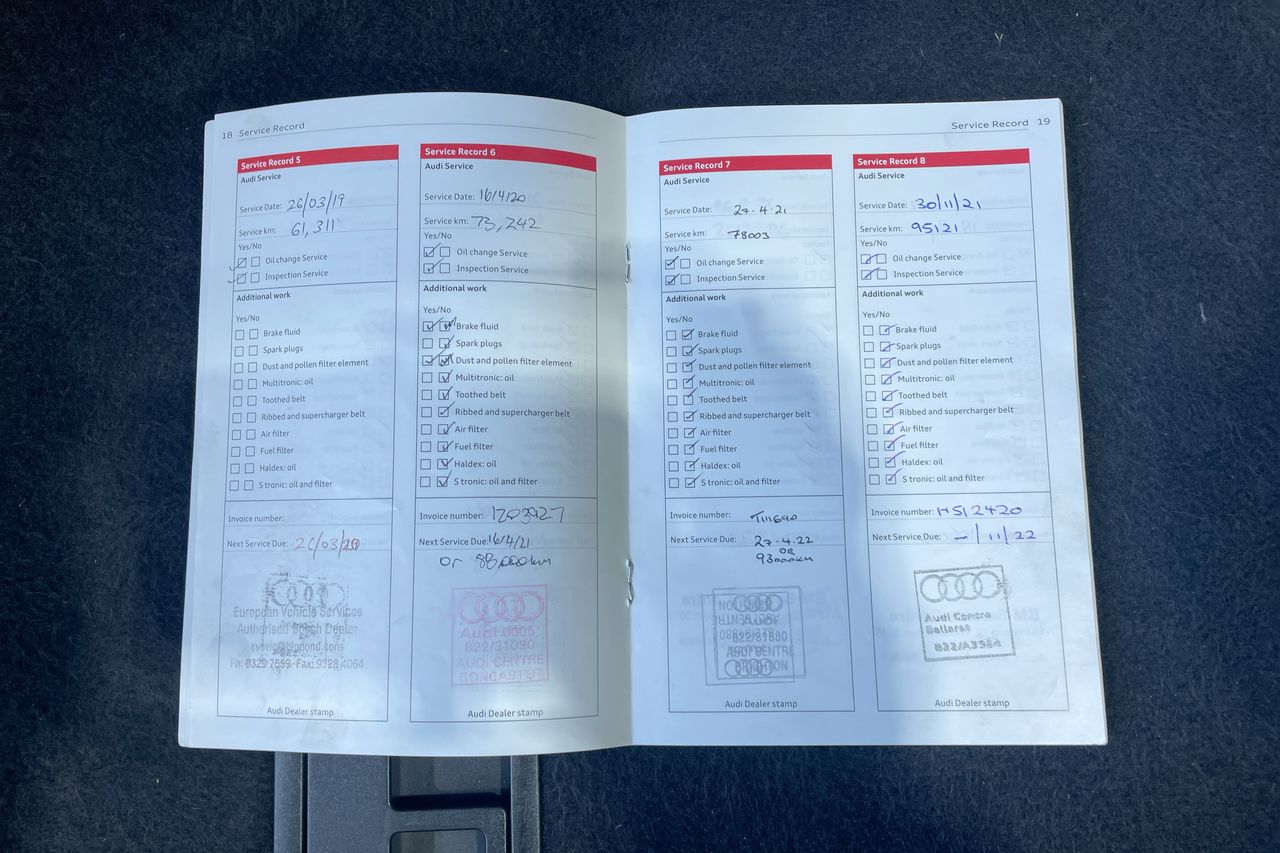 18 Service Record
Service Record 5
Audi Service
Service Date: 26/03/19
Service km: 61,311
Yes/No
Oil change Service
Inspection Service
Additional work
Yes/No
Brake fluid
Spark plugs
Dust and pollen filter element
Multitronic: oil
Toothed belt
Ribbed and supercharger belt
Air filter
Fuel filter
Haldex: oil
S tronic: oil and filter
Invoice number:
Next Service Due: 26/03/20
European Vehicle Services
Authorised Dealer
Ph: 9329 7559 Fax: 9328 4064
Audi Dealer stamp
Service Record 6
Audi Service
Service Date: 16/4/20
Service km: 73,242
Yes/No
Oil change Service
Inspection Service
Additional work
Yes/No
Brake fluid
Spark plugs
Dust and pollen filter element
Multitronic: oil
Toothed belt
Ribbed and supercharger belt
Air filter
Fuel filter
Haldex: oil
S tronic: oil and filter
Invoice number: 1203927
Next Service Due: 16/4/21
or 88,000km
Audi 0005
822/31090
AUDI CENTRE
DONCASTER
Audi Dealer stamp
Service Record 19
Service Record 7
Audi Service
Service Date: 27.4.21
Service km: 78003
Yes/No
Oil change Service
Inspection Service
Additional work
Yes/No
Brake fluid
Spark plugs
Dust and pollen filter element
Multitronic: oil
Toothed belt
Ribbed and supercharger belt
Air filter
Fuel filter
Haldex: oil
S tronic: oil and filter
Invoice number: T111690
Next Service Due: 27.4.22
OR
93000km
AUDI CENTRE
BRIGHTON
Audi Dealer stamp
Service Record 8
Audi Service
Service Date: 30/11/21
Service km: 95121
Yes/No
Oil change Service
Inspection Service
Additional work
Yes/No
Brake fluid
Spark plugs
Dust and pollen filter element
Multitronic: oil
Toothed belt
Ribbed and supercharger belt
Air filter
Fuel filter
Haldex: oil
S tronic: oil and filter
Invoice number: HS12420
Next Service Due: - / 11 / 22
Audi Centre
Ballarat
822/A3384
Audi Dealer stamp